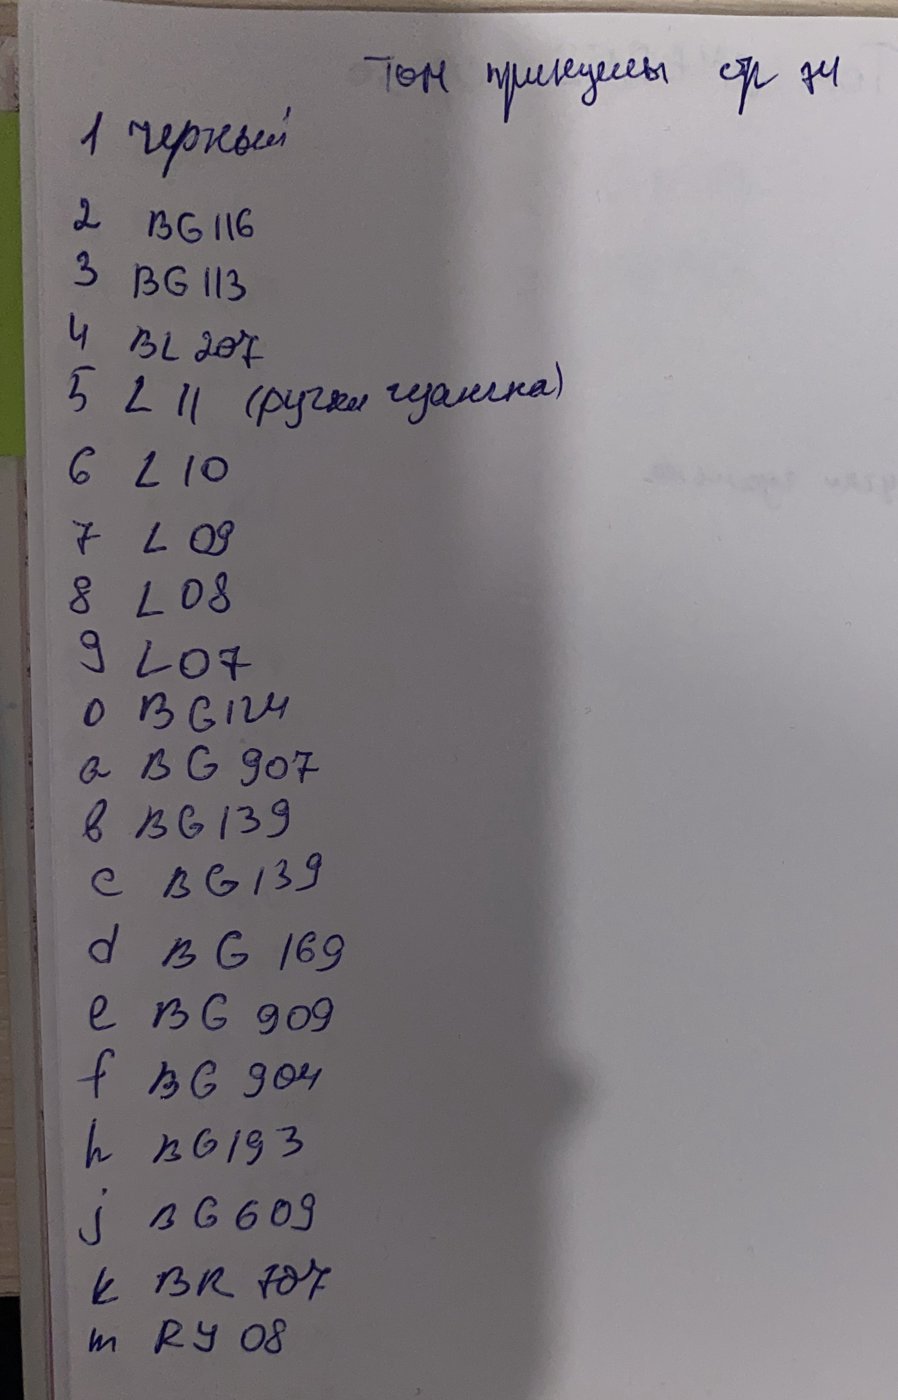 Тон принцессы стр 74
1 черный
2 BG 116
3 BG 113
4 BL 207
5 L 11 (ручки гуашка)
6 L 10
7 L 09
8 L 08
9 L07
0 BG124
a BG 907
b BG139
c BG139
d BG 169
e BG 909
f BG 904
h BG193
j BG 609
k BR 707
m RY 08